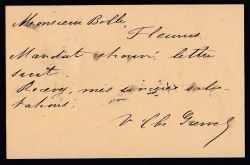 Monsieur Bolle
Fleurus
Mandat trouvé, lettre
suit.
Recevez, mes sincères salu-
tations.
V Chs